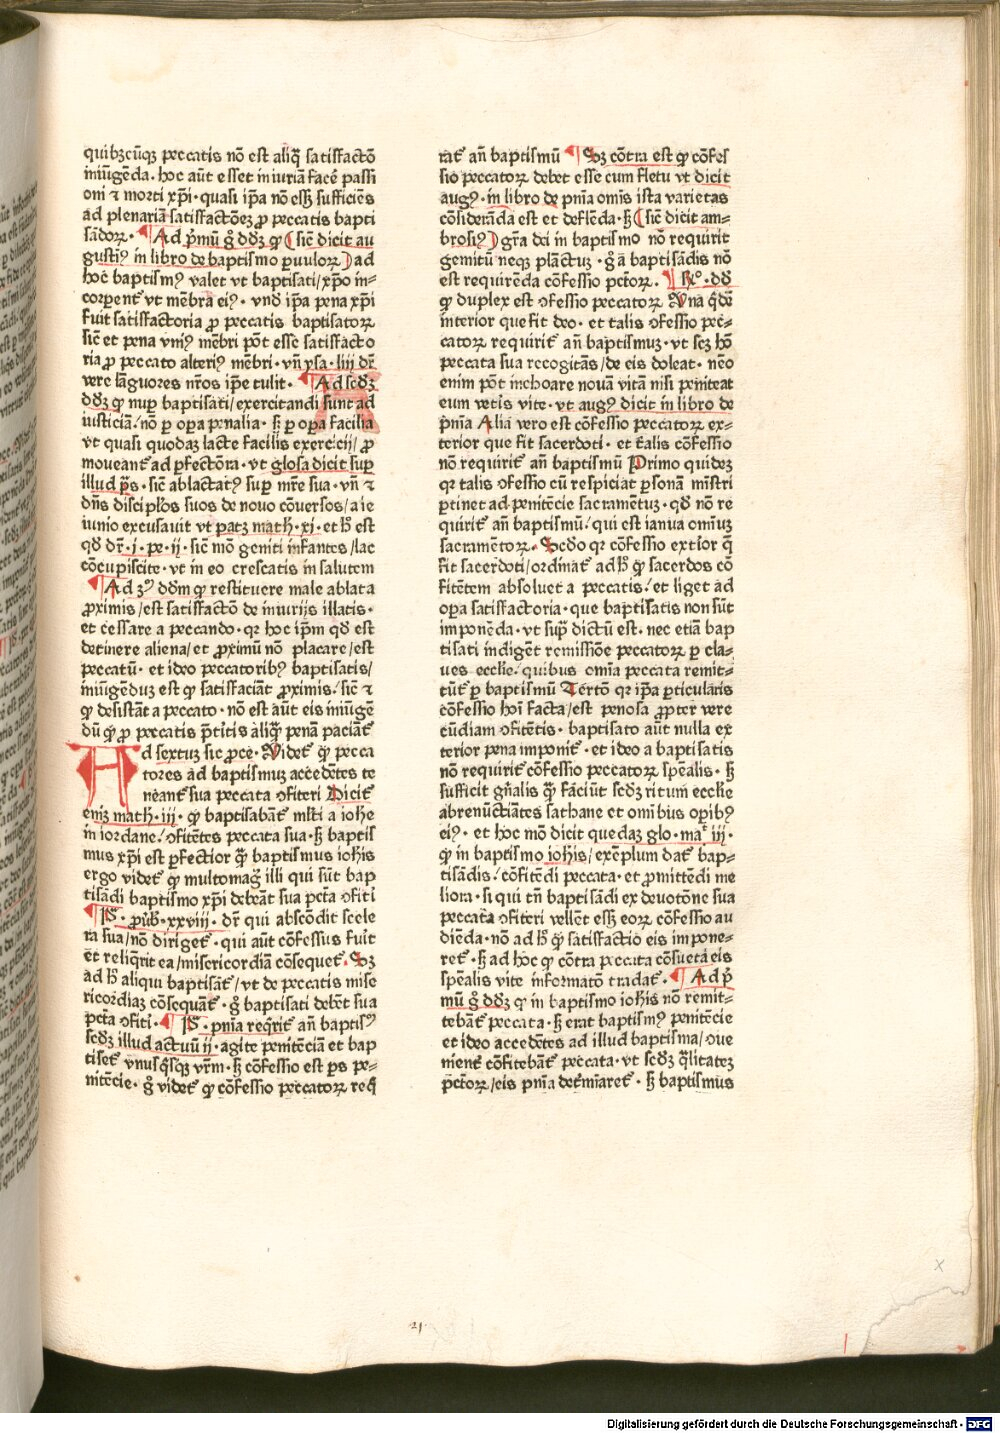 quibꝫcūqꝫ peccatis nō est aliq̄ satisfactō
iniūgēda. hoc aūt esset iniuriā facē passi
oni ⁊ morti xp̄i· quasi ip̄a nō essꝫ sufficiēs
ad plenariā satisfactōeꝫ ꝓ peccatis bapti
sādoꝝ· ¶ Ad p̄mū g̊ dd̄ꝫ ꝙ (sic̄ dicit au
gustiꝰ in libro de baptismo ꝑuuloꝝ) ad
hoc baptismꝰ valet vt baptisati/xp̄o in⸗
corꝑent᷑ vt mēbra eiꝰ· vnd̄ ip̄a pena xp̄i
fuit satisfactoria ꝓ peccatis baptisatoꝝ
sic̄ et pena vniꝰ mēbri pōt esse satisfacto
ria ꝓ peccato alteriꝰ mēbri· vn̄ ysa· liij dr̄
vere lāguores nr̄os ip̄e tulit· ¶ Ad scd̄ꝫ
dd̄ꝫ ꝙ nuꝑ baptisati/exercitandi sunt ad
iusticiā/nō ꝑ oꝑa penalia· sꝫ ꝑ oꝑa facilia
vt quasi quodaꝫ lacte facilis exercicij/ꝓ
moueant᷑ ad ꝑfectōra· vt glosa dicit suꝑ
illud p̄s· sic̄ ablactatꝰ suꝑ mr̄e sua· vn̄ ⁊
dn̄s discipl̄os suos de nouo cōuersos/a ie
iunio excusauit vt patꝫ math· xj· et h̄ est
qd̄ dr̄· j· pe· ij· sic̄ mō geniti infantes/lac
cōcupiscite· vt in eo crescatis in salutem
¶ Ad 3ꝰ dd̄m ꝙ restituere male ablata
ꝓximis/est satisfactō de iniurijs illatis·
et cessare a peccando· qꝛ hoc ip̄m qd̄ est
detinere aliena/et ꝓximū nō placare/est
peccatū· et ideo peccatoribꝰ baptisatis/
iniūgēduꝫ est ꝙ satisfaciāt ꝓximis/sic̄ ⁊
ꝙ desistāt a peccato· nō est aūt eis iniūgē
dū ꝙ ꝓ peccatis p̄titis aliq̄ penā paciāt᷑
Ad sextuꝫ sic ꝓce· Videt᷑ ꝙ pecca
tores ad baptismuꝫ accedētes te
neant᷑ sua peccata ꝯfiteri Dicit᷑
enīꝫ math· iij· ꝙ baptisabāt᷑ ml̄ti a iohe
in iordane/ꝯfitētes peccata sua· sꝫ baptis
mus xp̄i est ꝑfectior q̄ꝫ baptismus ioh̄is
ergo videt᷑ ꝙ multomag̊ illi qui sūt bap
tisādi baptismo xp̄i debeāt sua pctā ꝯfiti
¶ Ps· ꝓūb· xxviij· dr̄ qui abscōdit scele
ra sua/nō diriget᷑· qui aūt cōfessus fuit
et reliq̄rit ea/misericordiā cōsequet᷑· Sꝫ
ad h̄ aliqui baptisāt᷑/vt de peccatis mise
ricordiaꝫ cōsequāt᷑· g̊ baptisati debēt sua
pctā ꝯfiti· ¶ Ps· pn̄ia req̄rit᷑ an̄ baptisꝰ
scd̄ꝫ illud actuū ij· agite penitēciā et bap
tiset᷑ vnusq̄sqꝫ vr̄m· sꝫ cōfessio est ꝑs pe⸗
nitēcie· g̊ videt᷑ ꝙ cōfessio peccatoꝝ reqͥ
rat᷑ an̄ baptismū ¶ Sꝫ cōtra est ꝙ cōfes
sio peccatoꝝ debet esse cum fletu vt dicit
augꝰ· in libro de pn̄ia omīs ista varietas
cōsiderāda est et deflēda· sꝫ (sic̄ dicit am⸗
brosiꝰ) gr̄a dei in baptismo nō requirit
gemitū neqꝫ plāctuꝫ· g̊ a baptisādis nō
est requirēda cōfessio pct̄oꝝ. ¶ Rº· dd̄
ꝙ duplex est ꝯfessio peccatoꝝ Vna q̄dē
interior que fit deo· et talis ꝯfessio pec⸗
catoꝝ requirit᷑ an̄ baptismuꝫ· vt scꝫ hō
peccata sua recogitās/de eis doleat· neō
enim pōt inchoare nouā vitā nisi peniteat
eum vetīs vite· vt augꝰ dicit in libro de
pn̄ia Alia vero est cōfessio peccatoꝝ ex⸗
terior que fit sacerdoti· et t̄alis cōfessio
nō requirit᷑ an̄ baptismū Primo quideꝫ
qꝛ talis ꝯfessio cū respiciat ꝑsonā mīstri
ꝑtinet ad penitēcie sacramētuꝫ· qd̄ nō re
quirit᷑ an̄ baptismū/qui est ianua omīuꝫ
sacramētoꝝ. Scd̄o qꝛ cōfessio exͭior q̄
fit sacerdoti/ordinat᷑ ad h̄ ꝙ sacerdos cō
fitētem absoluet a peccatis/et liget ad
oꝑa satisfactoria· que baptisatis non sūt
imponēda· vt sup̄ dictū est· nec etiā bap
tisati indigēt remissiōe peccatoꝝ ꝑ cla⸗
ues ecclīe/quibus om̄ia peccata remit⸗
tūt᷑ ꝑ baptismū Tertō qꝛ ip̄a ꝑticularis
cōfessio hoī facta/est penosa ꝓpter vere
cūdiam ꝯfitētis· baptisato aūt nulla ex
terior pena imponit᷑· et ideo a baptisatis
nō requirit᷑ cōfessio peccatoꝝ spēalis· sꝫ
sufficit gn̄alis q̄ꝫ faciūt scd̄ꝫ ritum ecclīe
abrenūctiātes sathane et omībus oꝑibꝰ
eiꝰ· et hoc mō dicit quedaꝫ glo· maͭ iij·
ꝙ in baptismo ioh̄is/exēplum dat᷑ bap⸗
tisādis/cōfitēdi peccata· et ꝓmittēdi me
liora· si qui tn̄ baptisādi ex deuotōne sua
peccata ꝯfiteri vellēt essꝫ eoꝝ cōfessio au
diēda· nō ad h̄ ꝙ satisfactio eis impone⸗
ret᷑· sꝫ ad hoc ꝙ cōtra peccata cōsueta eis
spēalis vite informatō tradat᷑· ¶ Ad p̄
mū g̊ dd̄ꝫ ꝙ in baptismo ioh̄is nō remit⸗
tebāt᷑ peccata· sꝫ erat baptismꝰ penitēcie
et ideo accedētes ad illud baptisma/ꝯue
nient᷑ cōfitebāt᷑ peccata· vt scd̄ꝫ q̄litateꝫ
pct̄oꝝ/eis pn̄ia det᷑mīaret᷑· sꝫ baptismus
21
Digitalisierung gefördert durch die Deutsche Forschungsgemeinschaft - DFG